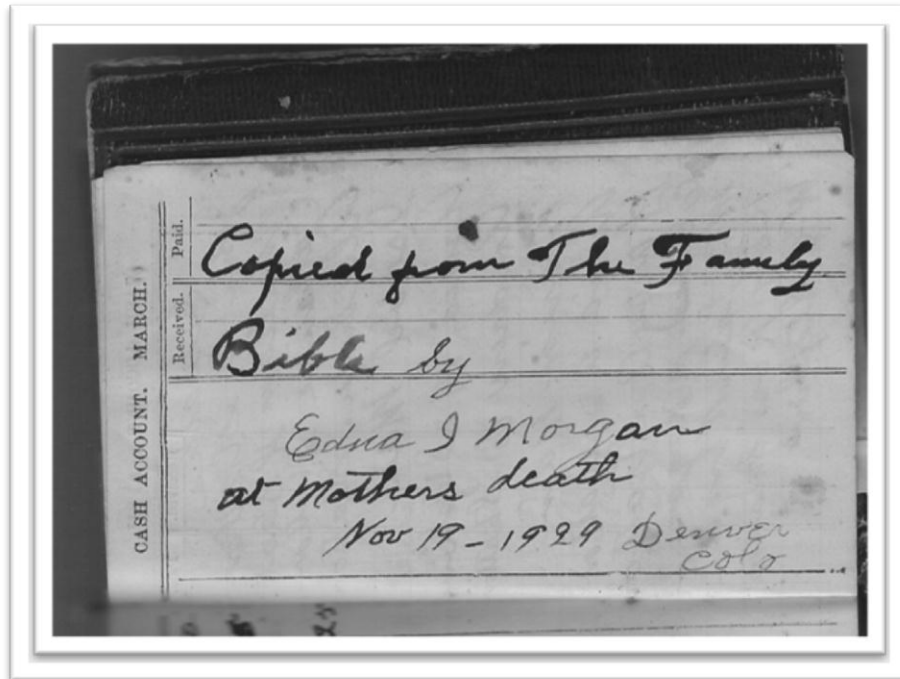 CASH ACCOUNT. MARCH.
Received.
Paid.
Copied from The Family
Bible by
Edna I Morgan
at Mothers death
Nov 19 - 1929 Denver
Colo